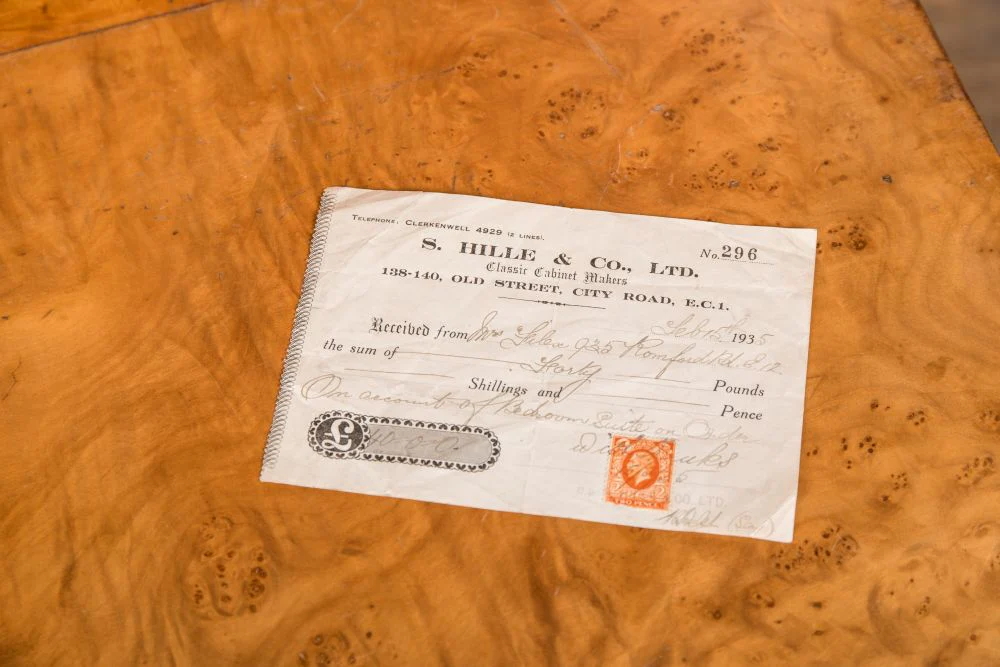 TELEPHONE: CLERKENWELL 4929 (2 LINES).
No. 296
S. HILLE & CO., LTD.
Classic Cabinet Makers
138-140, OLD STREET, CITY ROAD, E.C.1.
Feb 1935
Received from Mrs 935 Romford Rd. E.12.
the sum of Forty Pounds
Shillings and Pence
On account of Bedroom Suite on Order
£ 40-0-0
With
CO LTD.